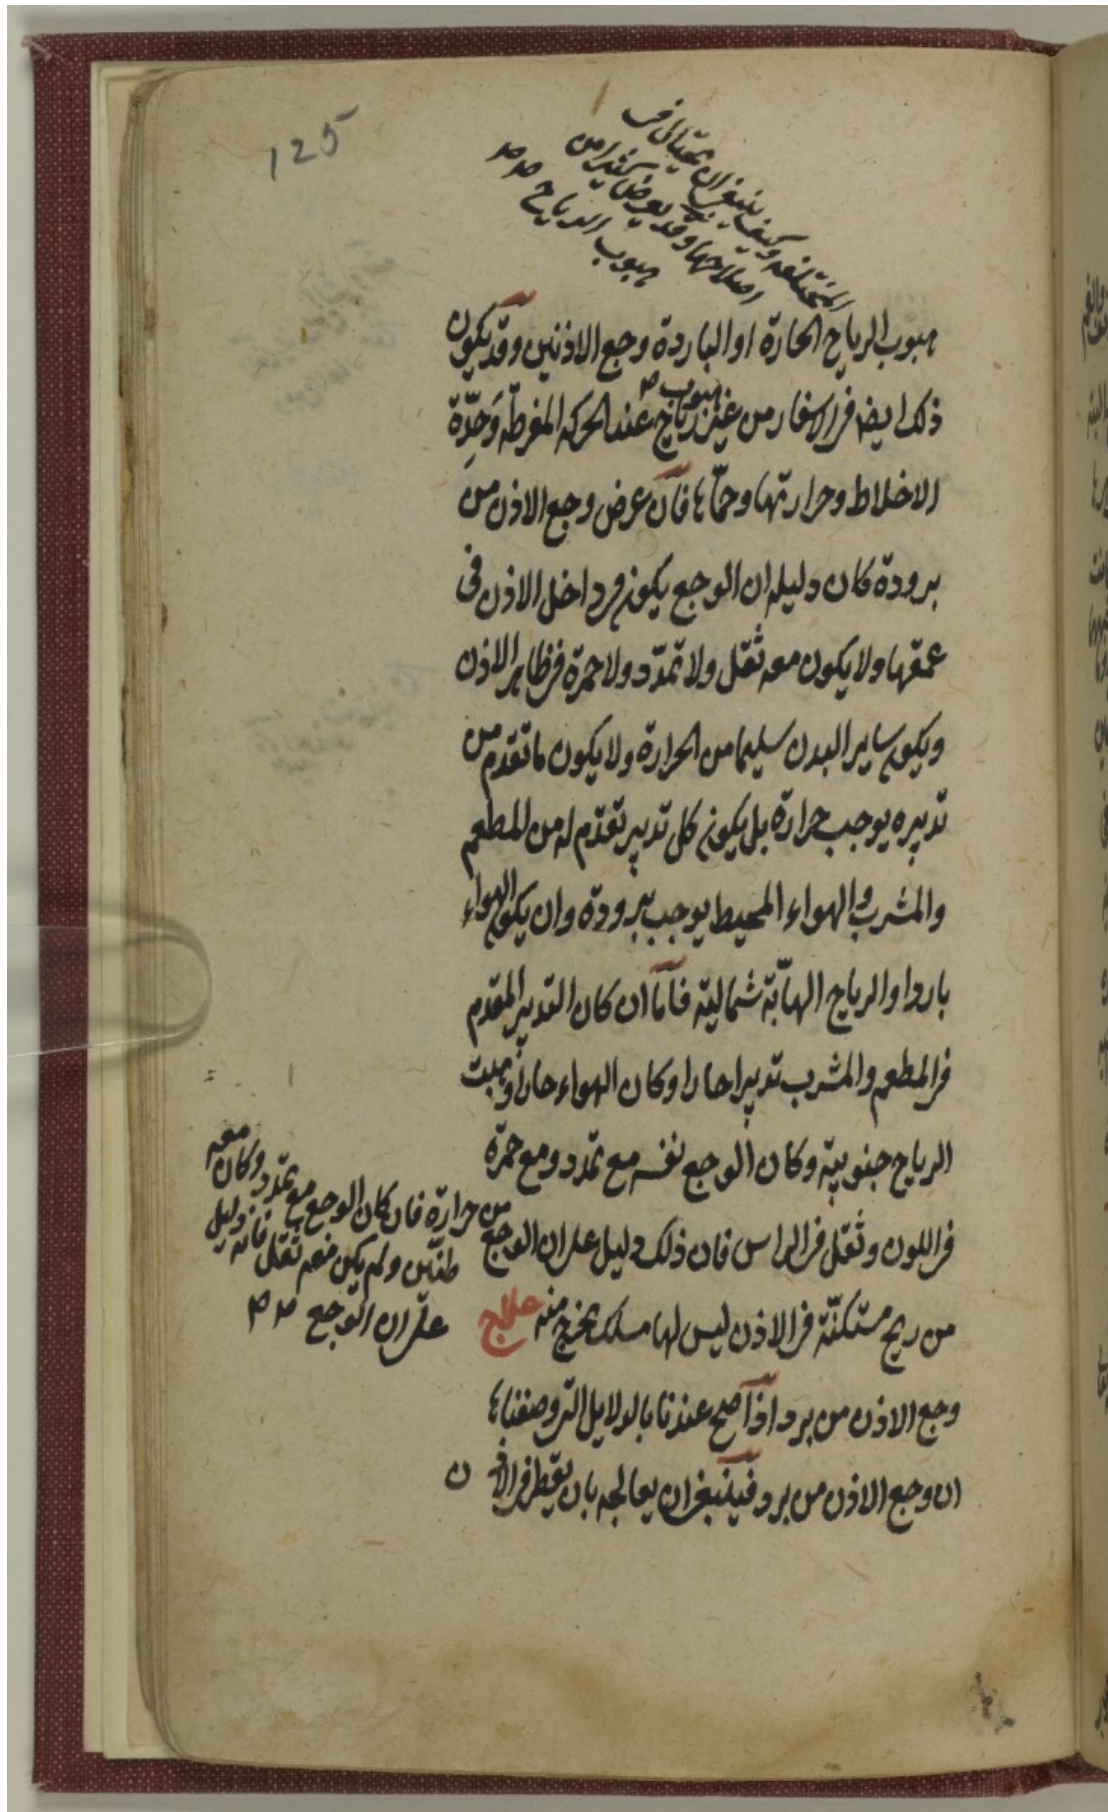 125
المختلفه وكيف ينبغى ان يحتال فى
اصلاحها وقد يعرض كثيرا من
هبوب الرياح صح صح
هبوب الرياح الحارة او الباردة وجع الاذنين وقد يكون
ذلك ايضا فى الاسفار من غير هبوب رياح عند الحركه المفرطة وحدّة
الاخلاط وحرارتها وحمّاها فان عرض وجع الاذن من
برودة كان دليله ان الوجع يكون فى داخل الاذن فى
عمقها ولا يكون معه ثقل ولا تمدّد ولا حمرة فى ظاهر الاذن
ويكون ساير البدن سليما من الحرارة ولا يكون ما تقدم من
تدبيره يوجب حرارة بل يكون كل تدبير تقدّم له من المطعم
والمشرب والهواء المحيط يوجب برودة وان يكون الهواء
باردا والرياح الهابّة شمالية فامّا ان كان التدبير المقدم
فى المطعم والمشرب تدبيرا حارا وكان الهواء حارا وهبت
الرياح جنوبية وكان الوجع نفسه مع تمدد ومع حمرة
فى اللون وثقل فى الراس فان ذلك دليل على ان الوجع
من حرارة فان كان الوجع مع تمدد وكان معه
طنين ولم يكن معه ثقل فانه دليل
على ان الوجع صح صح
من ريح مستكنّة فى الاذن ليس لها مسلك تخرج منه علاج
وجع الاذن من برد اذا صح عندنا بالدلايل التى وصفناها
ان وجع الاذن من برد فينبغى ان يعالجه بان يقطر فى الاذن